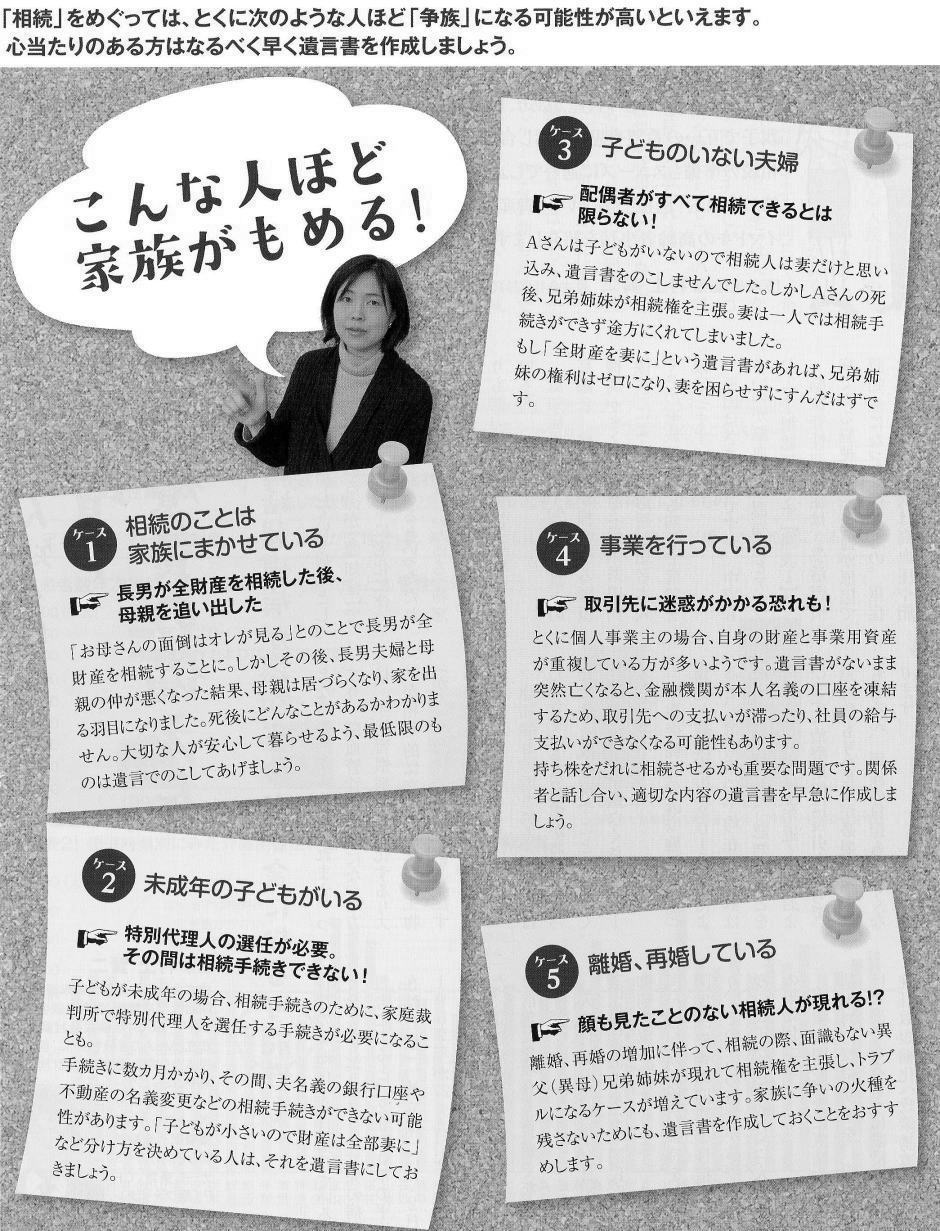 「相続」をめぐっては、とくに次のような人ほど「争族」になる可能性が高いといえます。
心当たりのある方はなるべく早く遺言書を作成しましょう。
こんな人ほど
家族がもめる！
ケース
1
相続のことは
家族にまかせている
長男が全財産を相続した後、
母親を追い出した
「お母さんの面倒はオレが見る」とのことで長男が全
財産を相続することに。しかしその後、長男夫婦と母
親の仲が悪くなった結果、母親は居づらくなり、家を出
る羽目になりました。死後にどんなことがあるかわかりま
せん。大切な人が安心して暮らせるよう、最低限のも
のは遺言でのこしてあげましょう。
ケース
2
未成年の子どもがいる
特別代理人の選任が必要。
その間は相続手続きできない！
子どもが未成年の場合、相続手続きのために、家庭裁
判所で特別代理人を選任する手続きが必要になるこ
とも。
手続きに数カ月かかり、その間、夫名義の銀行口座や
不動産の名義変更などの相続手続きができない可能
性があります。「子どもが小さいので財産は全部妻に」
など分け方を決めている人は、それを遺言書にしてお
きましょう。
ケース
3
子どものいない夫婦
配偶者がすべて相続できるとは
限らない！
Aさんは子どもがいないので相続人は妻だけと思い
込み、遺言書をのこしませんでした。しかしAさんの死
後、兄弟姉妹が相続権を主張。妻は一人では相続手
続きができず途方にくれてしまいました。
もし「全財産を妻に」という遺言書があれば、兄弟姉
妹の権利はゼロになり、妻を困らせずにすんだはずで
す。
ケース
4
事業を行っている
取引先に迷惑がかかる恐れも！
とくに個人事業主の場合、自身の財産と事業用資産
が重複している方が多いようです。遺言書がないまま
突然亡くなると、金融機関が本人名義の口座を凍結
するため、取引先への支払いが滞ったり、社員の給与
支払いができなくなる可能性もあります。
持ち株をだれに相続させるかも重要な問題です。関係
者と話し合い、適切な内容の遺言書を早急に作成しま
しょう。
ケース
5
離婚、再婚している
顔も見たことのない相続人が現れる!?
離婚、再婚の増加に伴って、相続の際、面識もない異
父（異母）兄弟姉妹が現れて相続権を主張し、トラブ
ルになるケースが増えています。家族に争いの火種を
残さないためにも、遺言書を作成しておくことをおすす
めします。